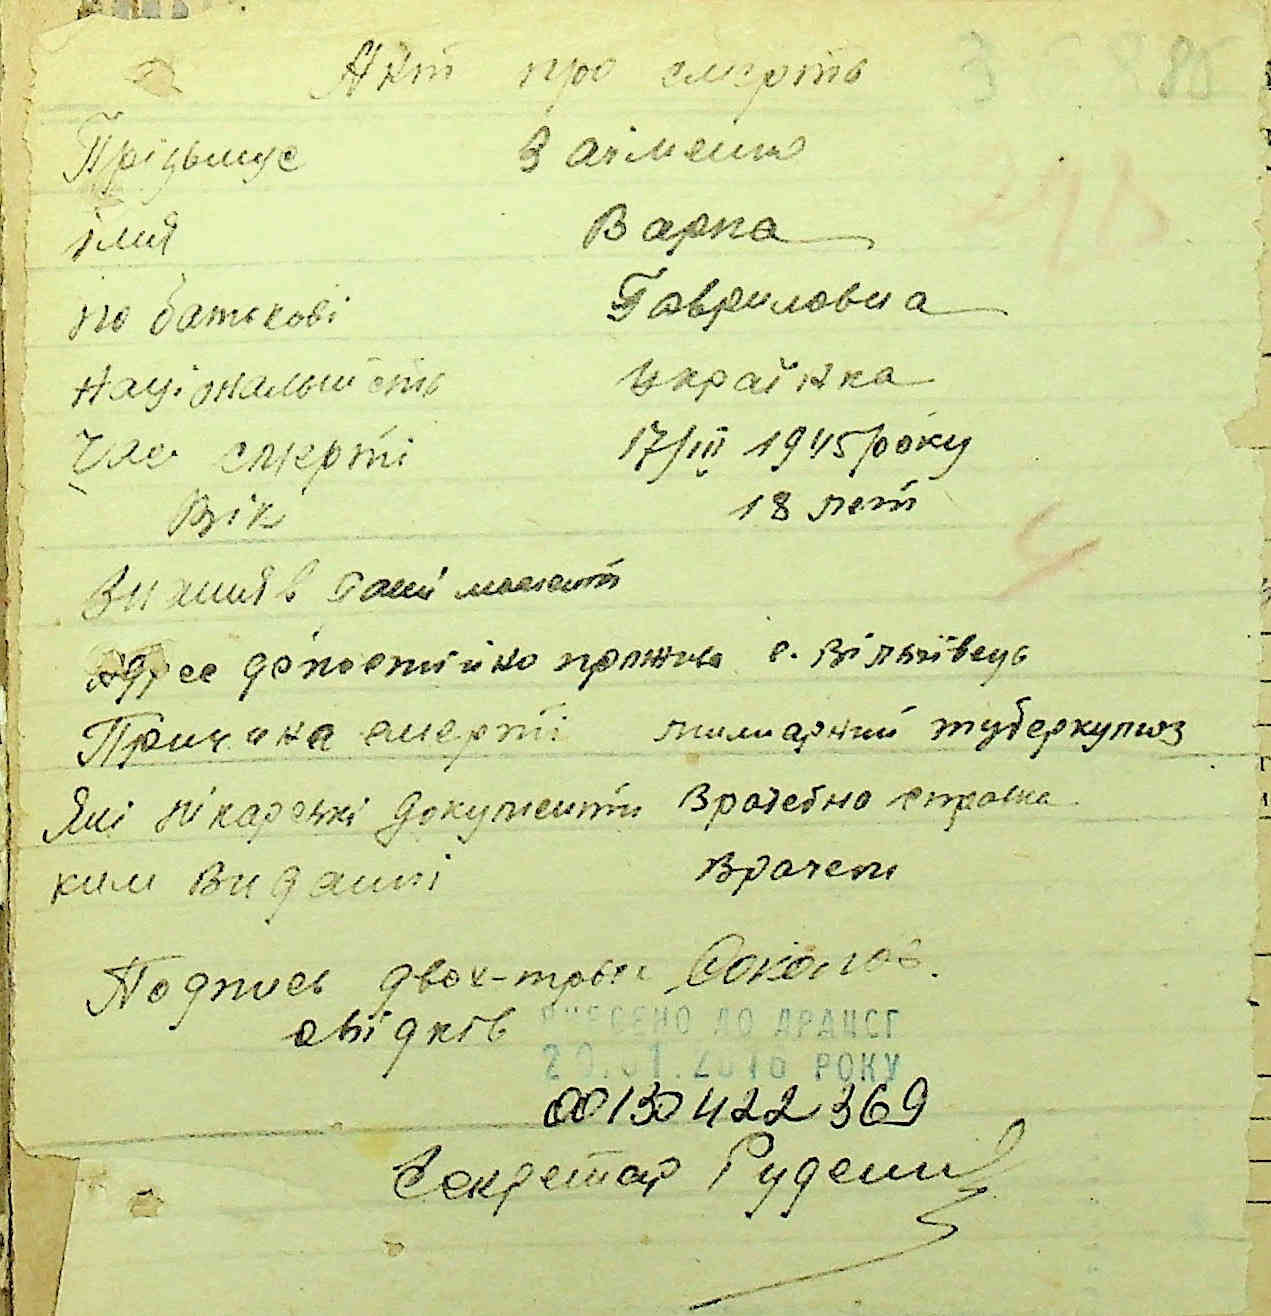 Акт про смерть
Прізьвище Заіменко
імия Варпа
по батькові Гавриловна
Національність Українка
Час смерті 17/III 1945 року
Вік 18 лет
в даній момент
Адрес де постійно прожива с. Вільхівець
Причина смерті милиарний туберкулюз
Які лікарські документи Врачебно справка
ким Виданні Врачем
Подпись двох-трьох Соколов.
свідків
ВНЕСЕНО ДО ДРАЦСГ
РОКУ
00130422369
Секретар Руденко